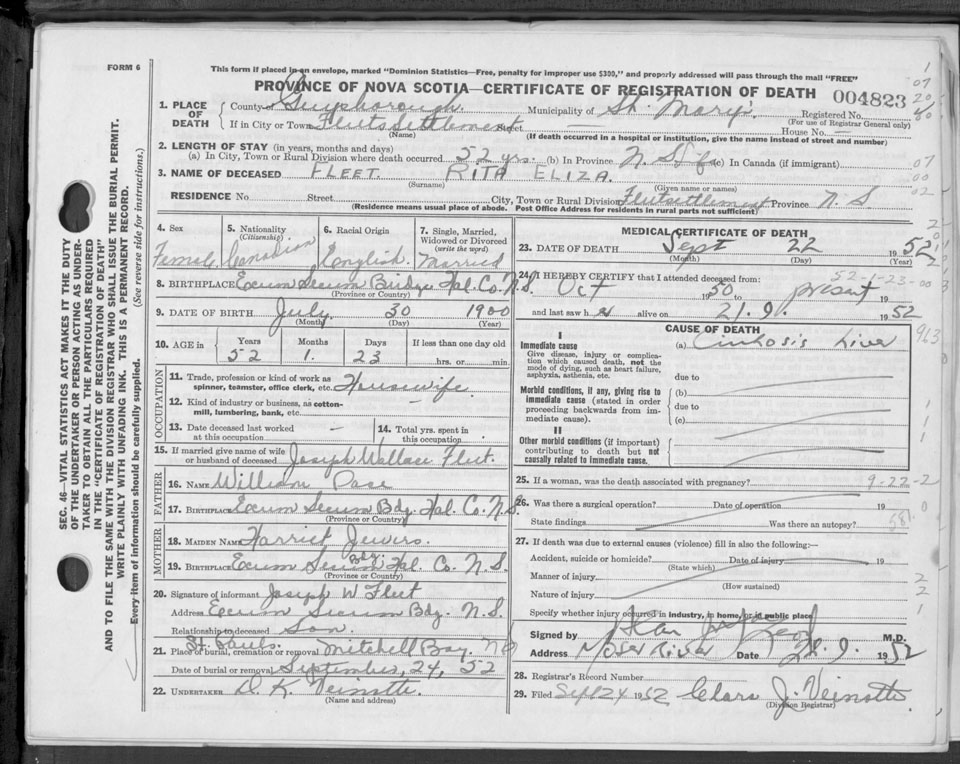 FORM 6
This form if placed in an envelope, marked "Dominion Statistics—Free, penalty for improper use $300," and properly addressed will pass through the mail "FREE"
PROVINCE OF NOVA SCOTIA—CERTIFICATE OF REGISTRATION OF DEATH
004823
1. PLACE OF DEATH
County of Guysborough. Municipality of St. Mary's Registered No.
(For use of Registrar General only)
If in City or Town Fleets Settlement Street House No. —
(Name) (If death occurred in a hospital or institution, give the name instead of street and number)
2. LENGTH OF STAY (in years, months and days)
(a) In City, Town or Rural Division where death occurred 52 yrs. (b) In Province N. S. (c) In Canada (if immigrant)
3. NAME OF DECEASED FLEET. RITA ELIZA.
(Surname) (Given name or names)
RESIDENCE No Street City, Town or Rural Division Fleetsettlement Province N. S.
(Residence means usual place of abode. Post Office Address for residents in rural parts not sufficient)
4. Sex Female
5. Nationality (Citizenship) Canadian
6. Racial Origin English
7. Single, Married, Widowed or Divorced (write the word) Married
8. BIRTHPLACE Ecum Secum Bridge Hal. Co. N.S.
(Province or Country)
9. DATE OF BIRTH July 30 1900
(Month) (Day) (Year)
10. AGE in Years Months Days If less than one day old
52 1. 23 hrs. or min.
OCCUPATION
11. Trade, profession or kind of work as spinner, teamster, office clerk, etc. Housewife
12. Kind of industry or business, as cotton-mill, lumbering, bank, etc. —
13. Date deceased last worked at this occupation —
14. Total yrs. spent in this occupation
15. If married give name of wife or husband of deceased Joseph Wallace Fleet.
FATHER
16. NAME William Pace
17. BIRTHPLACE Ecum Secum Bdg. Hal. Co. N.S.
(Province or Country)
MOTHER
18. MAIDEN NAME Harriet Jewers.
19. BIRTHPLACE Ecum Secum Bdg. Hal. Co. N.S.
(Province or Country)
20. Signature of informant Joseph W Fleet
Address Ecum Secum Bdg. N.S.
Relationship to deceased Son.
St. Pauls.
21. Place of burial, cremation or removal Mitchell Bay. NS
Date of burial or removal September, 24, 52
22. UNDERTAKER D. K. Veinotte.
(Name and address)
MEDICAL CERTIFICATE OF DEATH
23. DATE OF DEATH Sept 22 1952
(Month) (Day) (Year)
24. I HEREBY CERTIFY that I attended deceased from:
52-1-23-00
Oct 1950 to present 19
and last saw her alive on 21. 9. 1952
CAUSE OF DEATH
I
Immediate cause
Give disease, injury or complication which caused death, not the mode of dying, such as heart failure, asphyxia, asthenia, etc.
(a) Cirrhosis Liver
due to
Morbid conditions, if any, giving rise to immediate cause (stated in order proceeding backwards from immediate cause).
(b)
due to
(c)
II
Other morbid conditions (if important) contributing to death but not causally related to immediate cause.
25. If a woman, was the death associated with pregnancy? 9-22-2
26. Was there a surgical operation? Date of operation 19
State findings Was there an autopsy? 581
27. If death was due to external causes (violence) fill in also the following:—
Accident, suicide or homicide? Date of injury 19
(State which)
Manner of injury
(How sustained)
Nature of injury
Specify whether injury occurred in industry, in home, or in public place
Signed by M.D.
Address Moser River Date 22. 9. 1952
28. Registrar's Record Number
29. Filed Sept 24 1952 Clara J. Veinotte
(Division Registrar)
SEC. 46—VITAL STATISTICS ACT MAKES IT THE DUTY
OF THE UNDERTAKER OR PERSON ACTING AS UNDER-
TAKER TO OBTAIN ALL THE PARTICULARS REQUIRED
IN THE "CERTIFICATE OF REGISTRATION OF DEATH"
AND TO FILE THE SAME WITH THE DIVISION REGISTRAR WHO SHALL ISSUE THE BURIAL PERMIT.
WRITE PLAINLY WITH UNFADING INK. THIS IS A PERMANENT RECORD.
Every item of information should be carefully supplied. (See reverse side for instructions.)